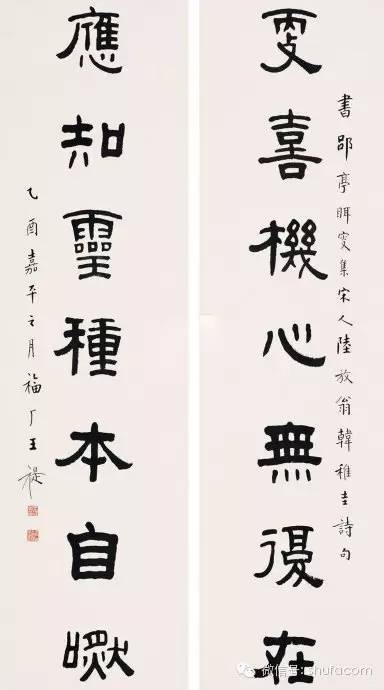 更喜機心無復在
書郘亭眲叟集宋人陸放翁韓稚圭詩句
應知靈種本自
乙酉嘉平之月福厂王禔
微信号: shufacom